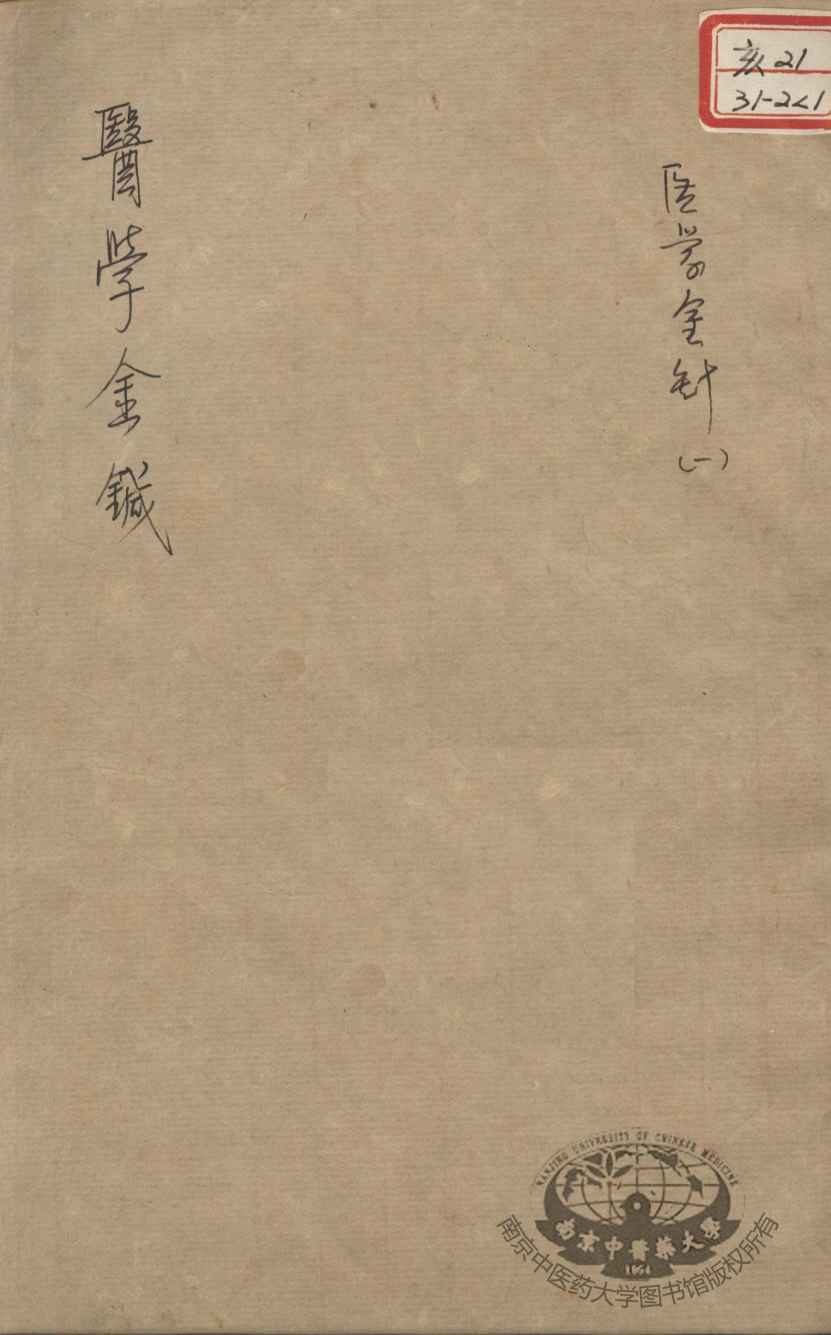 亥21
31-2<1
医学金针
(一)
醫學金鍼
NANJING UNIVERSITY OF CHINESE MEDICINE
南京中醫藥大學
1954
南京中医药大学图书馆版权所有